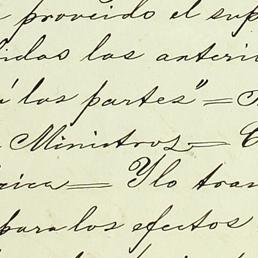 proveido el sup
idas las anteri
á las partes"=
Ministros=
ica= Ylo tras
para los efectos